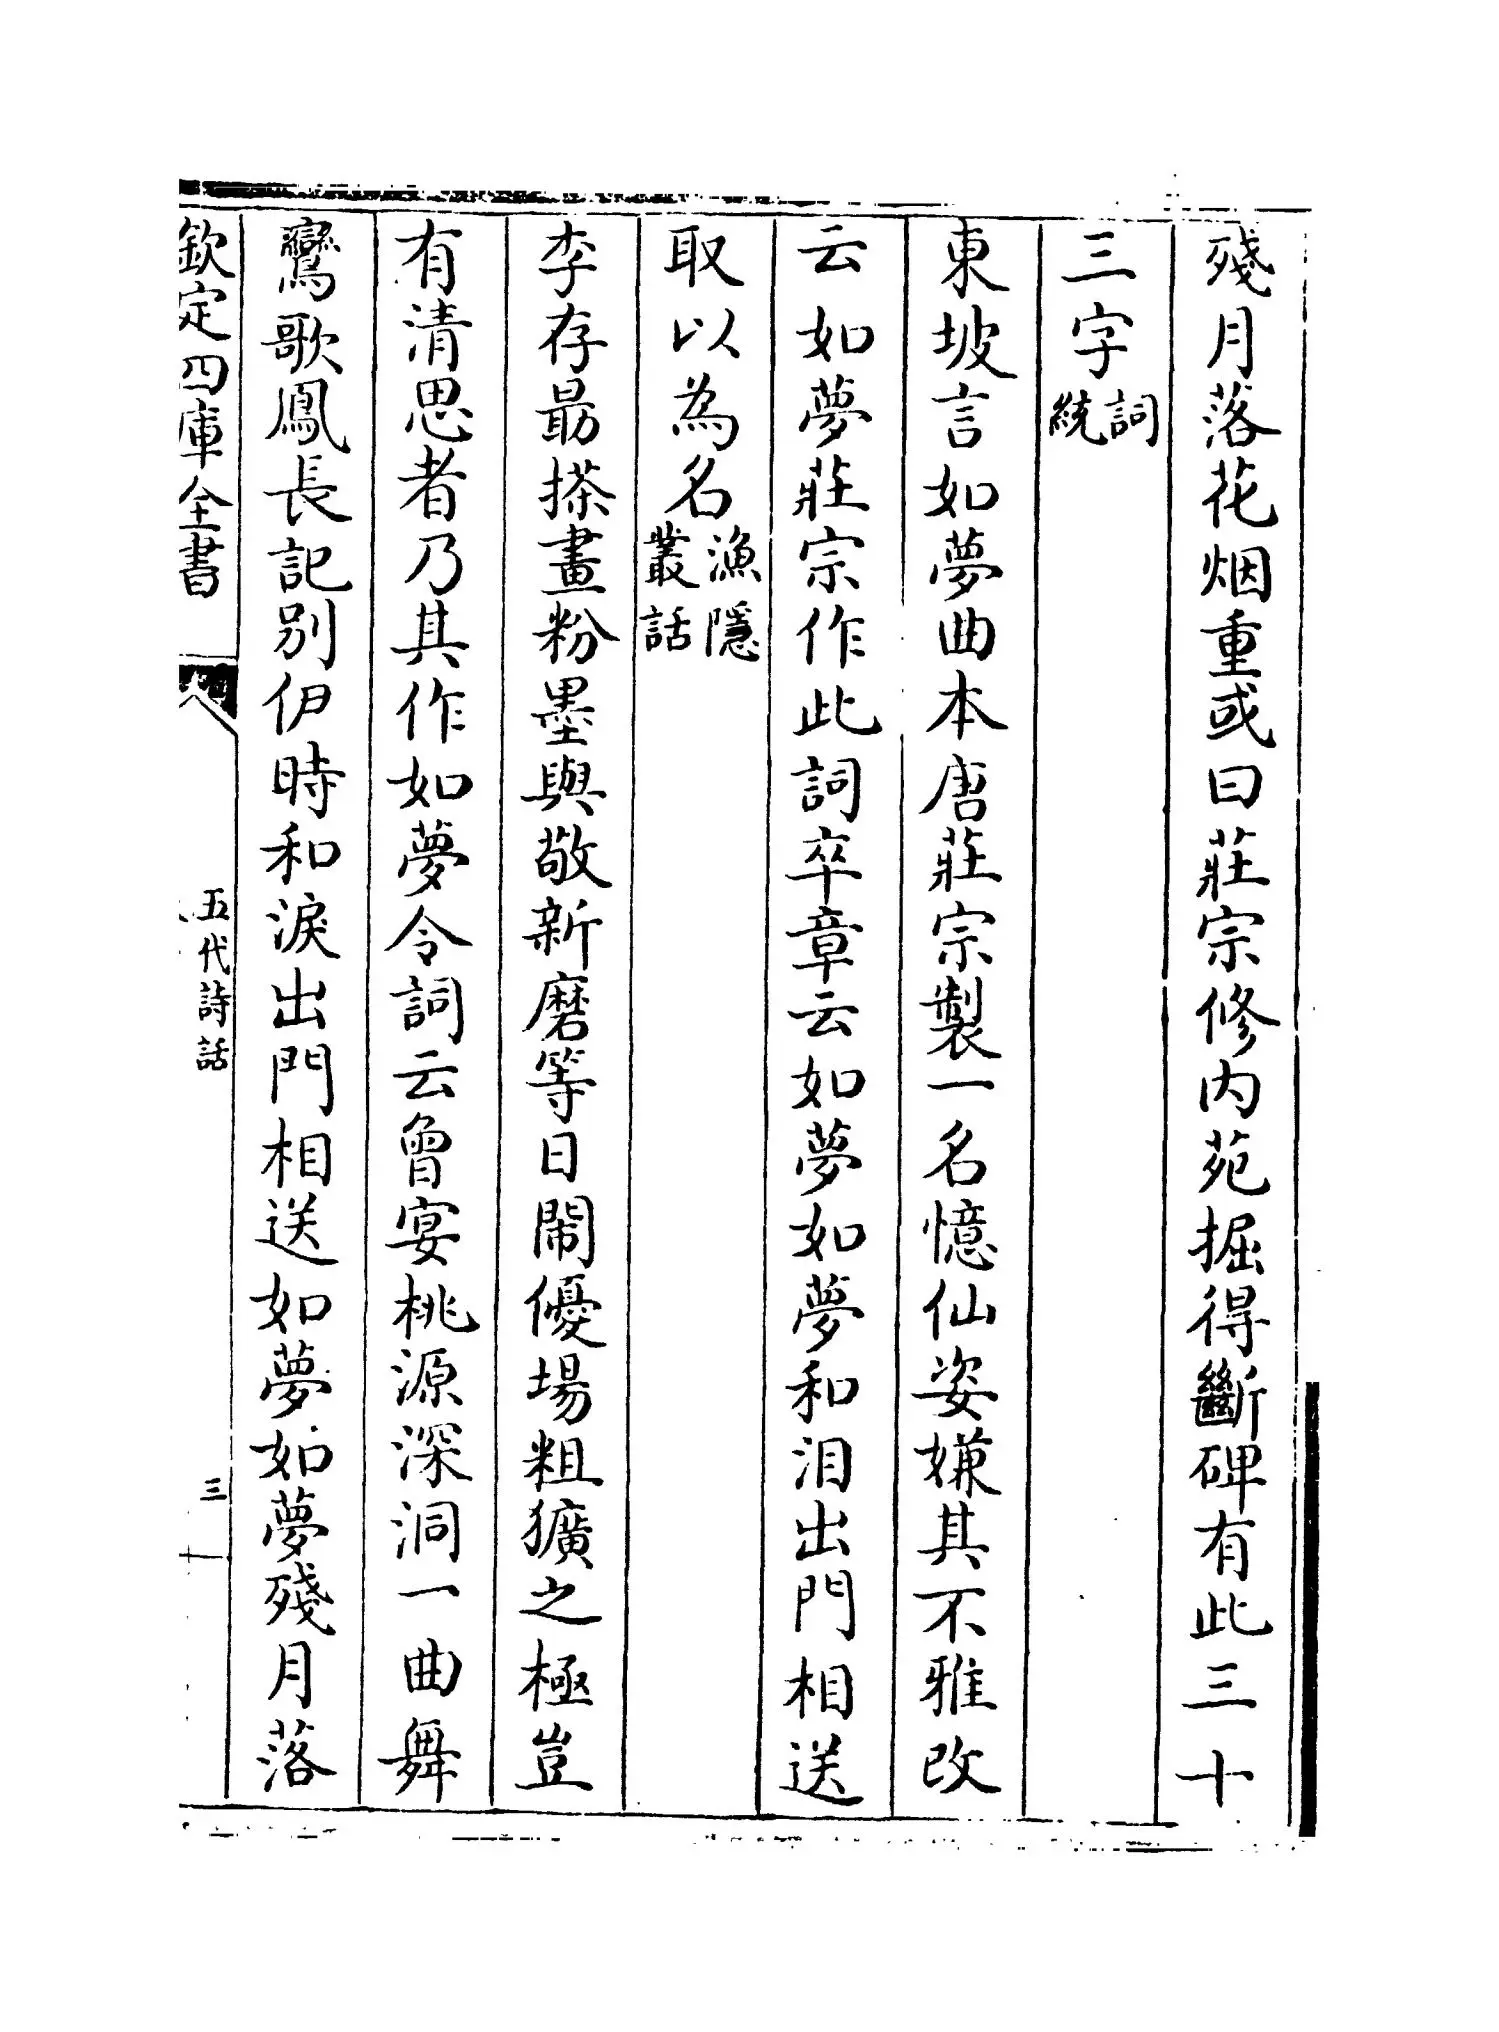 殘月落花烟重或曰莊宗修内苑掘得斷碑有此三十
三字詞統
東坡言如夢曲本唐莊宗製一名憶仙姿嫌其不雅改
云如夢莊宗作此詞卒章云如夢如夢和泪出門相送
取以為名漁隱叢話
李存勗搽畫粉墨與敬新磨等日鬧優場粗獷之極豈
有清思者乃其作如夢令詞云曾宴桃源深洞一曲舞
鸞歌鳳長記別伊時和淚出門相送如夢如夢殘月落
欽定四庫全書
五代詩話
三